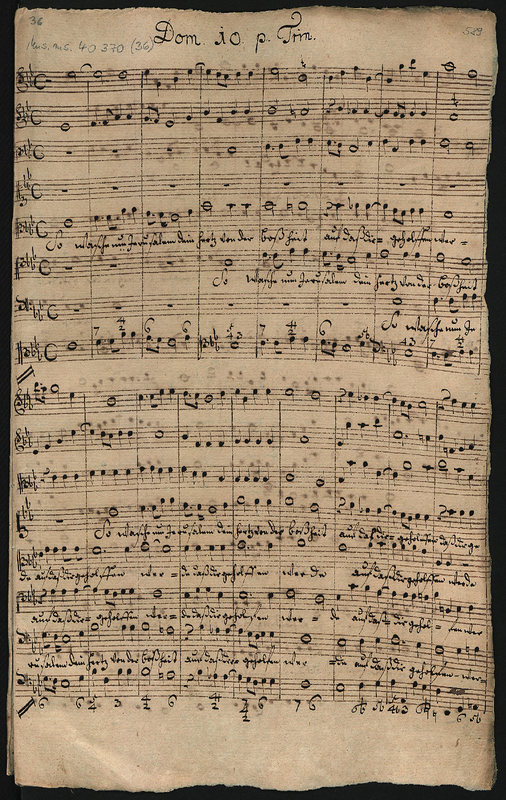 36
529
Mus. ms. 40 370 (36)
Dom. 10. p. Trin.
So wasche nun Jerusalem dein hertz von der boßheit auf daß dir geholffen wer-
So wasche nun Jerusalem dein hertz von der boßheit
So wasche nun Je
7 6 6 7 4 3
So wasche nun Jerusalem dein hertz von der boßheit auf daß dir geholffen daß dir ge
de auf daß dir geholffen wer- de auf daß dir geholffen werde auf daß dir geholffen werde
auf daß dir geholffen wer- de daß dir geholffen wer- de auf daß dir gehol- fen wer
rusalem dein hertz von der boßheit auf daß dir geholffen wer- de auf daß dir geholffen wer-
6 6 3 6 6 7 6